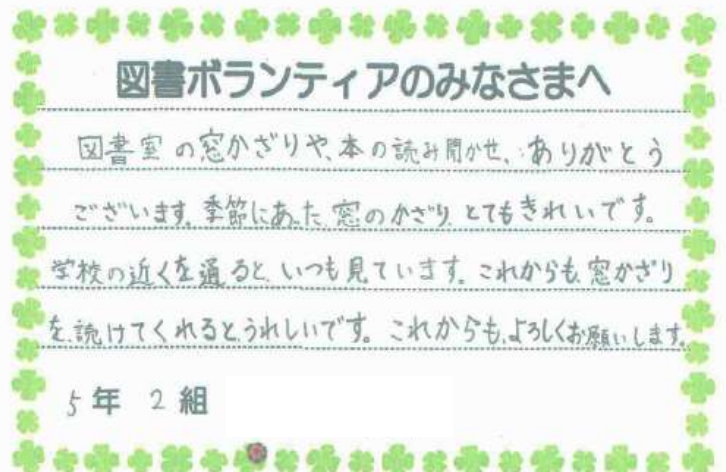 図書ボランティアのみなさまへ
図書室の窓かざりや、本の読み聞かせ、ありがとう
ございます。季節にあった窓のかざり、とてもきれいです。
学校の近くを通ると、いつも見ています。これからも、窓かざり
を続けてくれるとうれしいです。これからも、よろしくお願いします。
5年 2組